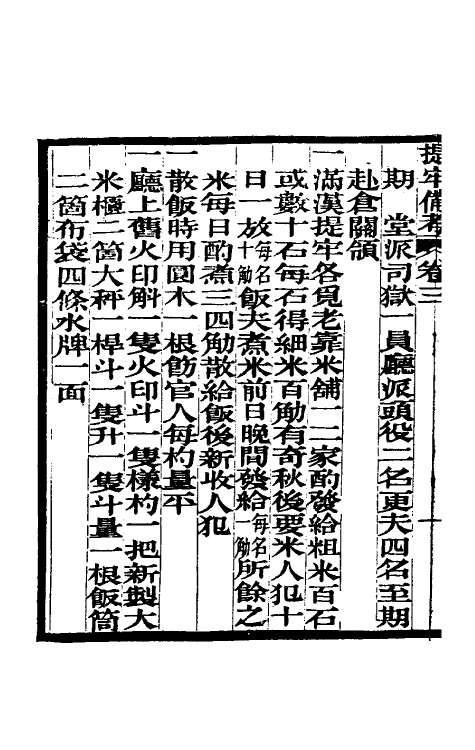 提牢備考 卷三
期　堂派司獄一員廳派頭役二名更夫四名至期
赴倉關領
一滿漢提牢各覓老靠米舖一二家酌發給粗米百石
或數十石每石得細米百觔有奇秋後要米人犯十
日一放每名十觔飯夫煮米前日晚間發給每名一觔所餘之
米每日酌煮三四觔散給飯後新收人犯
一散飯時用圓木一根飭官人每杓量平
一廳上舊火印斛一隻火印斗一隻樣杓一把新製大
米櫃二箇大秤一桿斗一隻升一隻斗量一根飯筒
二箇布袋四條水牌一面